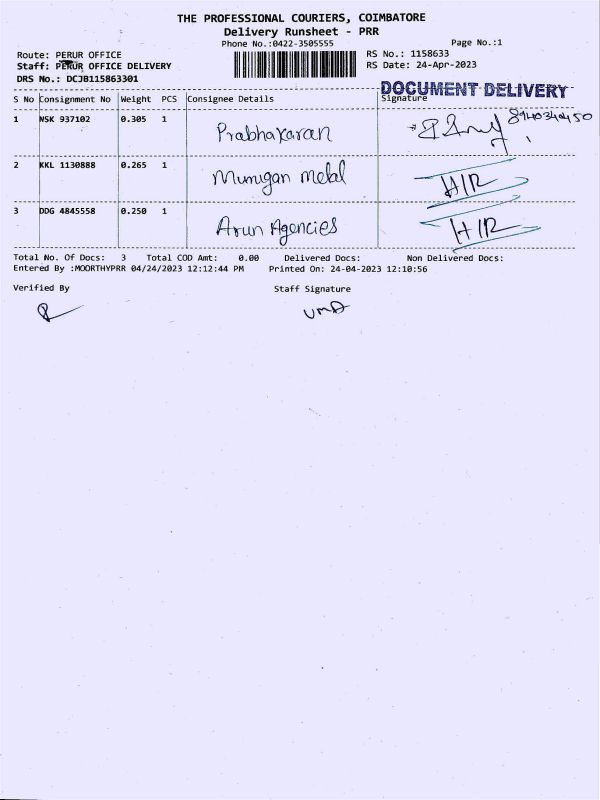 THE PROFESSIONAL COURIERS, COIMBATORE
Delivery Runsheet - PRR
Phone No.:0422-3505555
Page No.:1
Route: PERUR OFFICE
RS No.: 1158633
Staff: PERUR OFFICE DELIVERY
RS Date: 24-Apr-2023
DRS No.: DCJB115863301
DOCUMENT DELIVERY
S No Consignment No Weight PCS Consignee Details Signature
1 NSK 937102 0.305 1 Prabhakaran
2 KKL 1130888 0.265 1 Murugan metal H/R
3 DDG 4845558 0.250 1 Arun Agencies H/R
Total No. Of Docs: 3 Total COD Amt: 0.00 Delivered Docs: Non Delivered Docs:
Entered By :MOORTHYPRR 04/24/2023 12:12:44 PM Printed On: 24-04-2023 12:10:56
Verified By Staff Signature
UMA